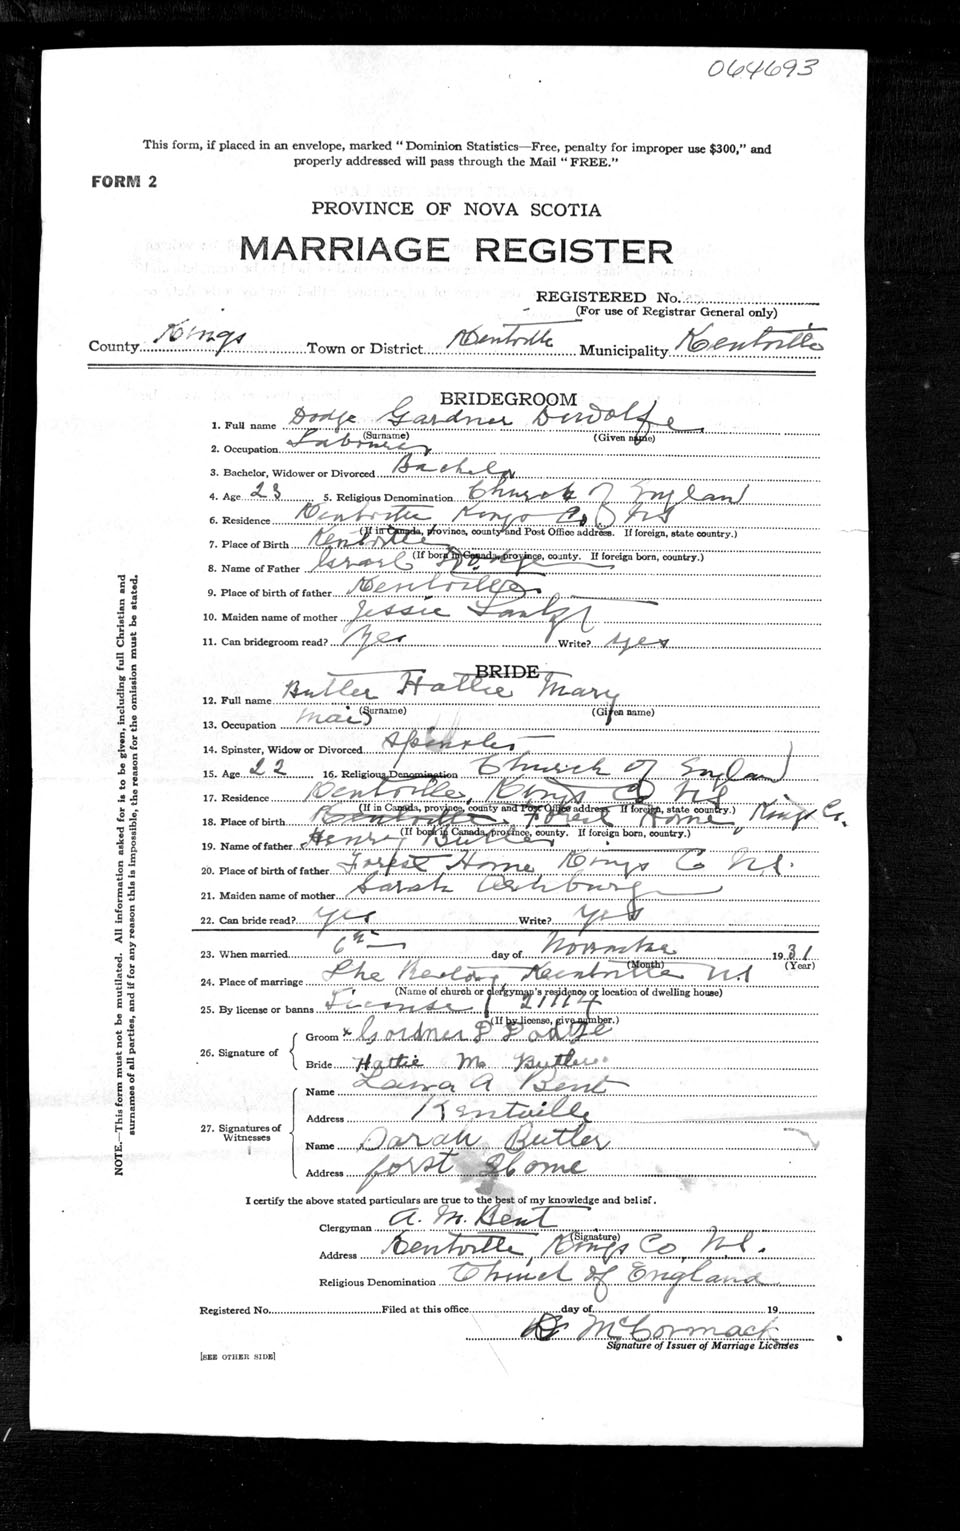 064693
This form, if placed in an envelope, marked "Dominion Statistics—Free, penalty for improper use $300," and
properly addressed will pass through the Mail "FREE."
FORM 2
PROVINCE OF NOVA SCOTIA
MARRIAGE REGISTER
REGISTERED No.
(For use of Registrar General only)
County Kings Town or District Kentville Municipality Kentville
BRIDEGROOM
1. Full name Dodge Gardner Dewolfe
(Surname) (Given name)
2. Occupation Laborer
3. Bachelor, Widower or Divorced Bachelor
4. Age 23 5. Religious Denomination Church of England
6. Residence Kentville Kings Co NS
(If in Canada, province, county and Post Office address. If foreign, state country.)
7. Place of Birth Kentville
(If born in Canada, province, county. If foreign born, country.)
8. Name of Father Israel Dodge
9. Place of birth of father Kentville
10. Maiden name of mother Jessie
11. Can bridegroom read? Yes Write? yes
BRIDE
12. Full name Butler Hattie Mary
(Surname) (Given name)
13. Occupation Maid
14. Spinster, Widow or Divorced Spinster
15. Age 22 16. Religious Denomination Church of England
17. Residence Kentville, Kings Co NS
(If in Canada, province, county and Post Office address. If foreign, state country.)
18. Place of birth Kentville Forest Home, Kings Co.
(If born in Canada, province, county. If foreign born, country.)
19. Name of father Henry Butler
20. Place of birth of father Forest Home Kings Co N.S.
21. Maiden name of mother Sarah
22. Can bride read? yes Write? yes
23. When married 6th day of November 1931
(Month) (Year)
24. Place of marriage The Rectory Kentville NS
(Name of church or clergyman's residence or location of dwelling house)
25. By license or banns License
(If by license, give number.)
26. Signature of
Groom x Gordner D Dodge
Bride Hattie M Butler
27. Signatures of Witnesses
Name Laura A Bent
Address Kentville
Name Sarah Butler
Address forst Home
I certify the above stated particulars are true to the best of my knowledge and belief.
Clergyman A. M. Bent
(Signature)
Address Kentville, Kings Co, N.S.
Religious Denomination Church of England
Registered No. Filed at this office day of 19
McCormack
Signature of Issuer of Marriage Licenses
[SEE OTHER SIDE]
NOTE.—This form must not be mutilated. All information asked for is to be given, including full Christian and
surnames of all parties, and if for any reason this is impossible, the reason for the omission must be stated.